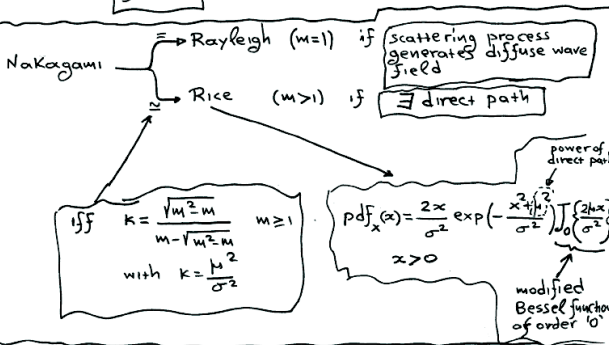 Nakagami
≡ Rayleigh (m=1) if
scattering process
generates diffuse wave
field
≅ Rice (m>1) if ∃ direct path
iff K = √(m²-m) / (m-√(m²-m)) m≥1
with K = μ²/σ²
pdfₓ(x) = 2x/σ² exp(-(x²+μ²)/σ²) J₀{2μx/σ²}
x>0
power of
direct pat
modified
Bessel function
of order '0'